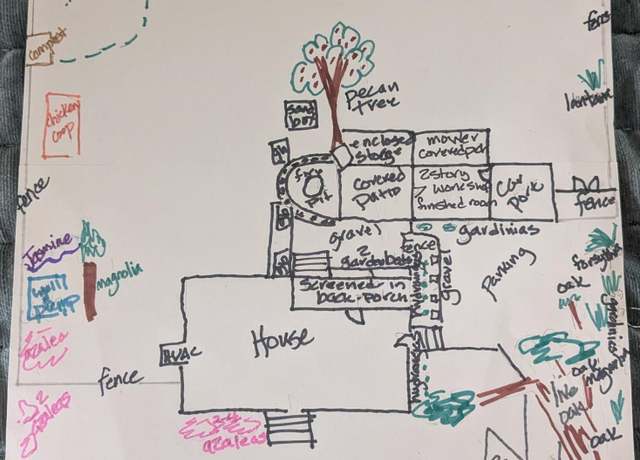 compost
fence
chicken
coop
pecan
tree
sand
box
enclosed
storge
mower
covered pen
lantana
fire
pit
covered
patio
2 story
workshop
finished room
car
port
fence
fence
Jasmine
magnolia
gravel
2
fence
gardinias
gravel
Parking
forsythia
oak
well
pump
azalea
screened in
back-porch
House
HVAC
fence
hydrangeas
oak
magnolia
live
oak
oak
2
azaleas
azaleas